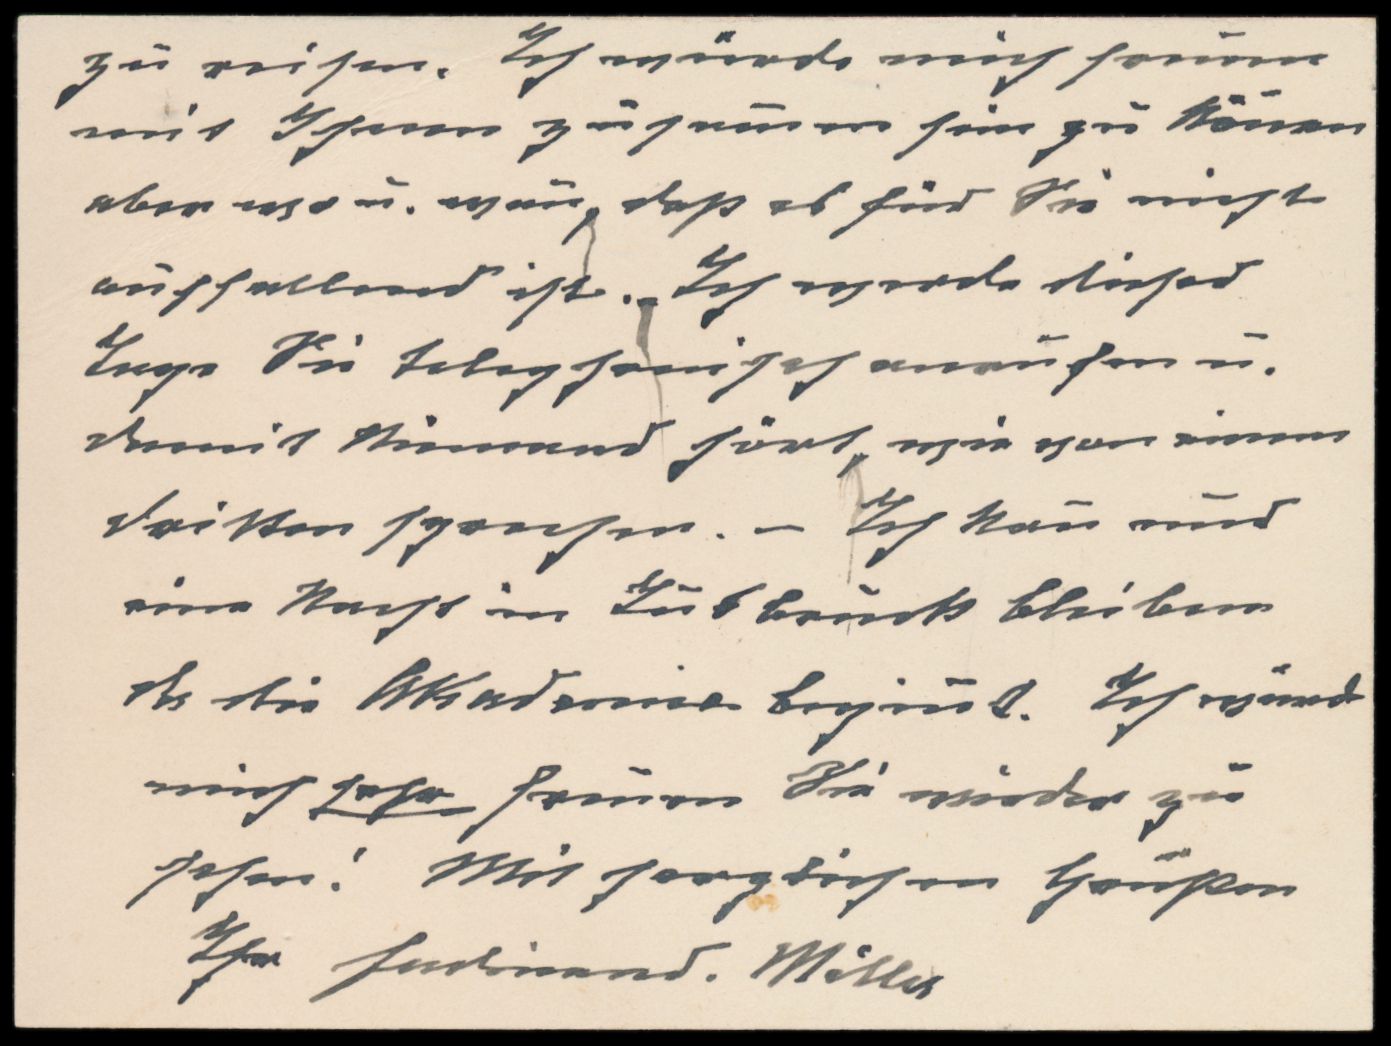 zu reisen. Ich würde mich freuen
mit Ihnen zusam̄en sein zu kön̄en
aber wo u. wan̄, daß es für Sie nicht
auffallend ist. Ich werde dieser
Tage Sie telephonisch anrufen u.
damit Niemand hört, wie von einem
dritten sprechen. – Ich kan̄ nur
eine Nacht in Insbruck bleiben
da die Akademie begin̄t. Ich würd
mich sehr freuen Sie wieder zu
sehen! Mit herzlichen Grüßen
Ihr Ferdinand. Miller